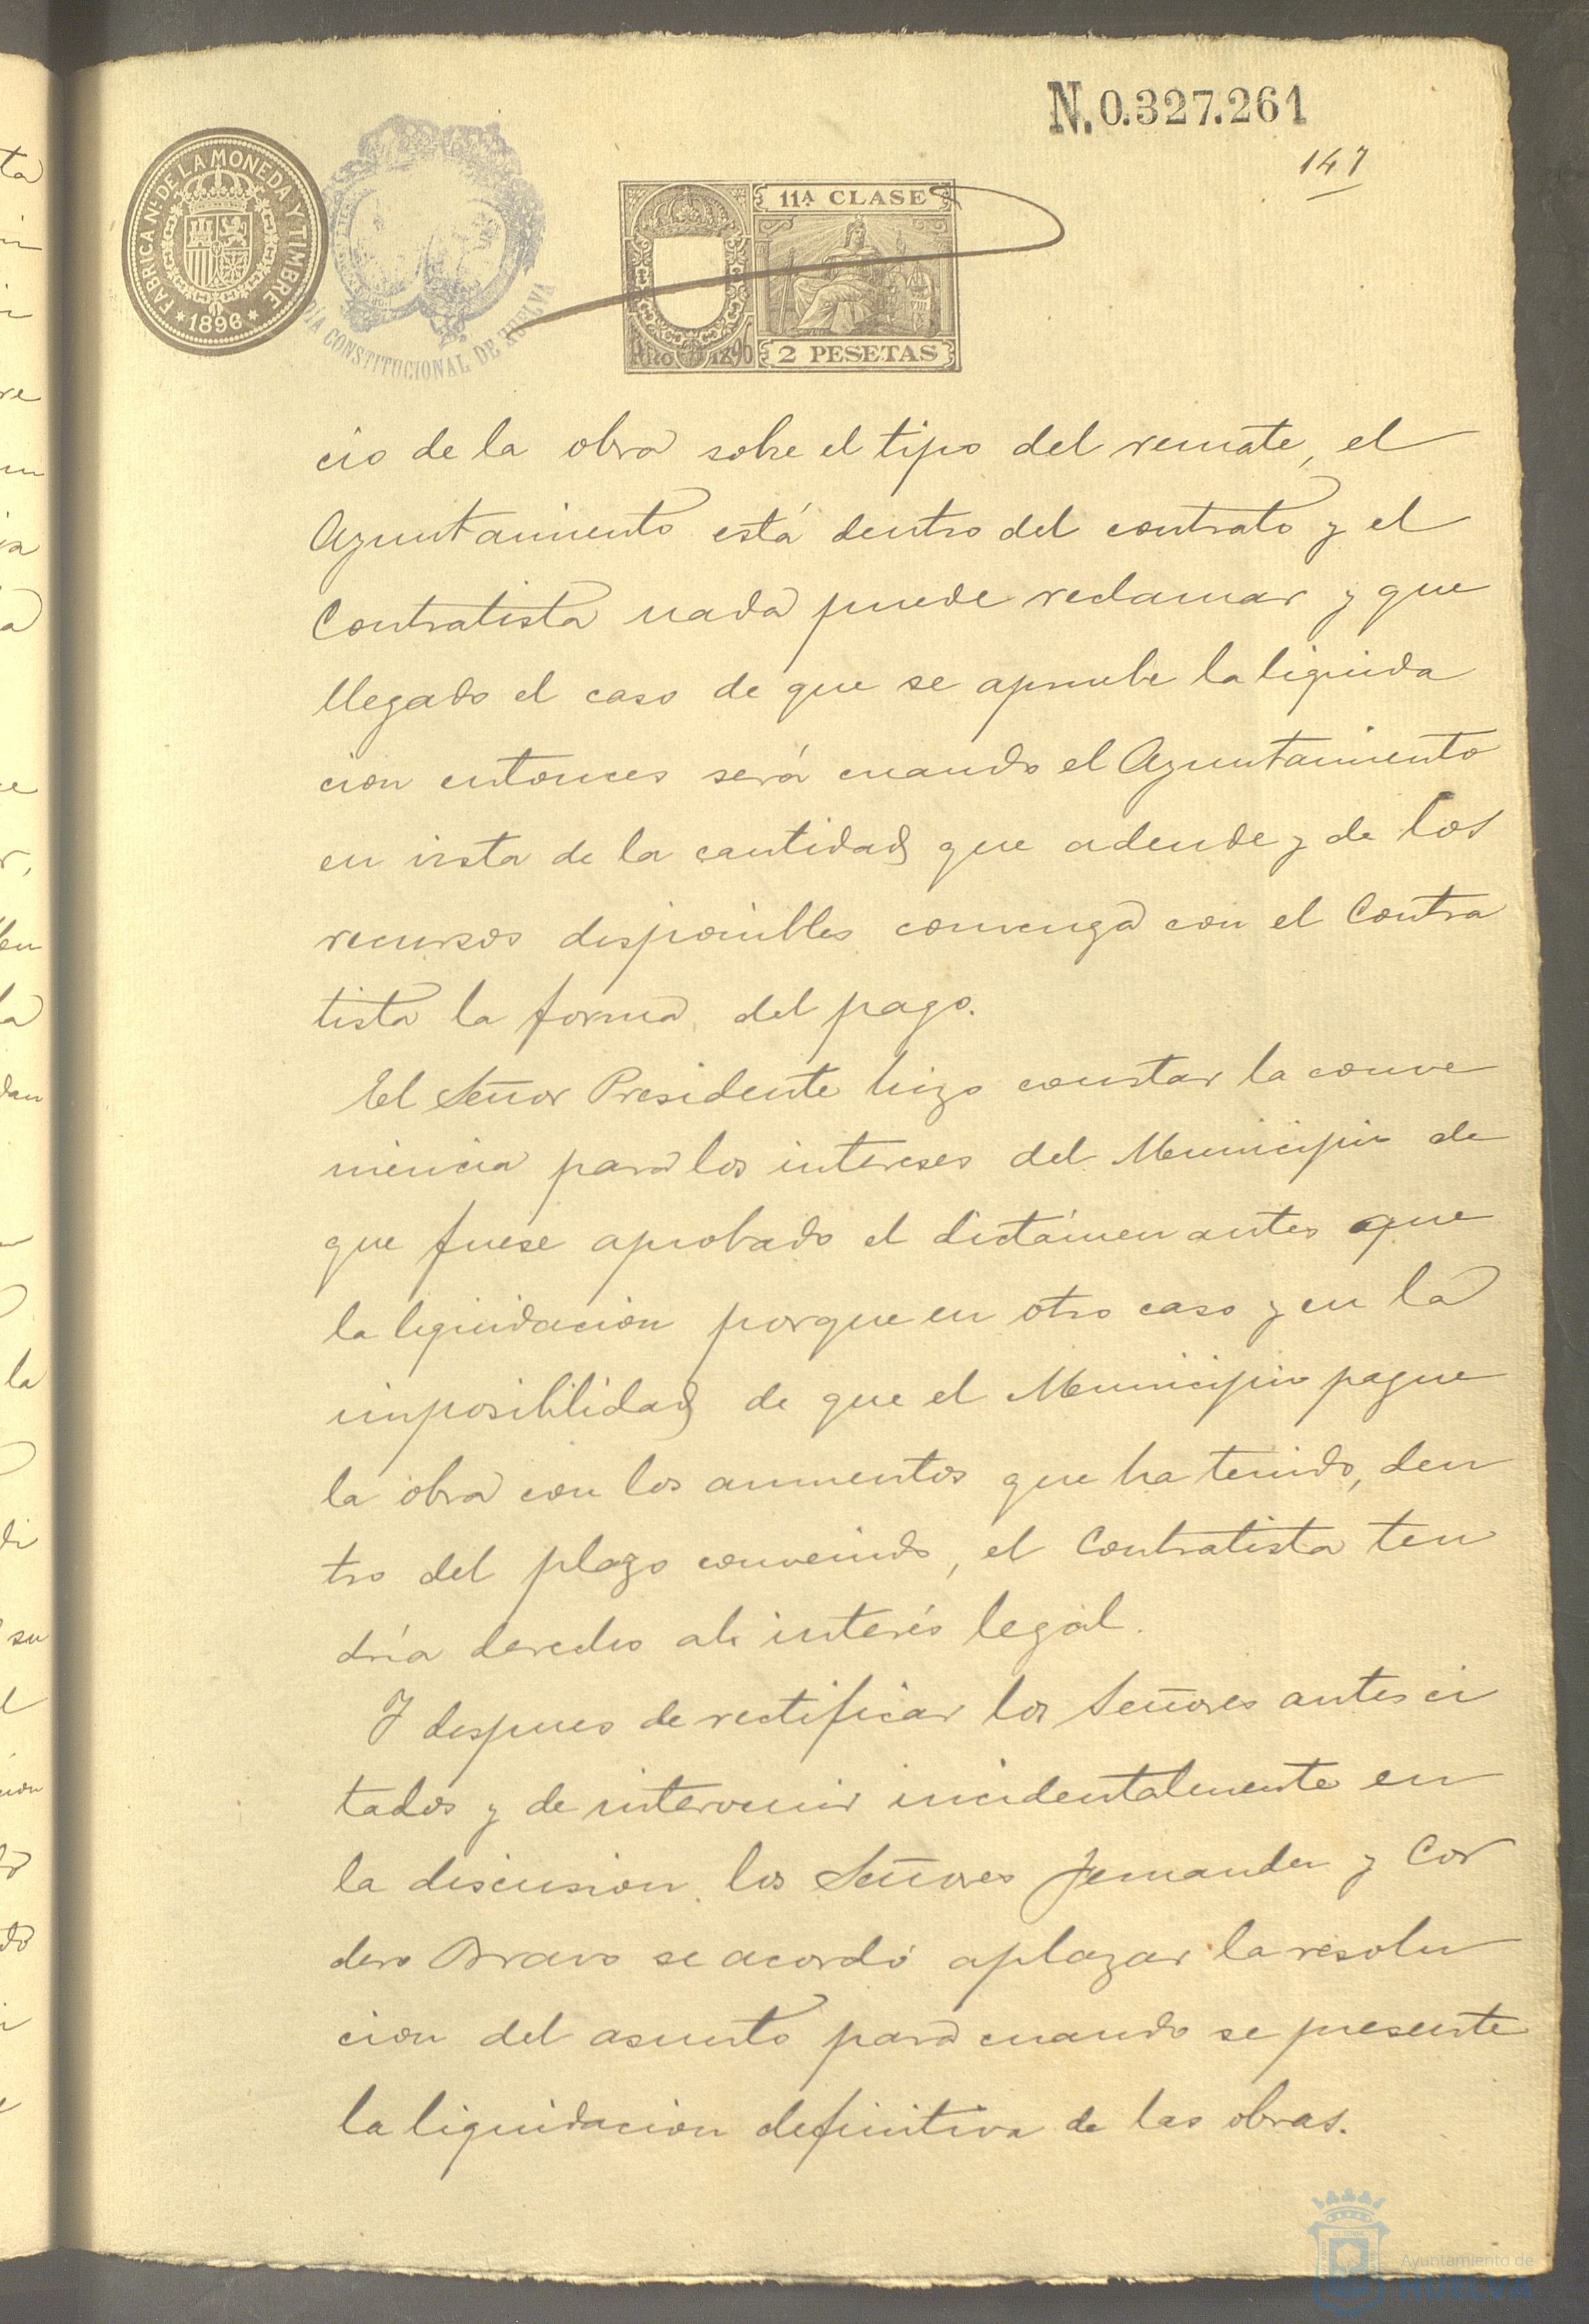 N.0.327.261
147
FABRICA NL. DE LA MONEDA Y TIMBRE
* 1896 *
DIA CONSTITUCIONAL DE HUELVA
11A CLASE
Año 1896
2 PESETAS
cio de la obra sobre el tipo del remate, el
Ayuntamiento está dentro del contrato y el
Contratista nada puede reclamar y que
llegado el caso de que se apruebe la liquida
cion entonces será cuando el Ayuntamiento
en vista de la cantidad que adeude y de los
recursos disponibles convenga con el Contra
tista la forma del pago.
El Señor Presidente hizo constar la conve
niencia para los intereses del Municipio de
que fuese aprobado el dictámen antes que
la liquidacion porque en otro caso y en la
imposibilidad de que el Municipio pague
la obra con los aumentos que ha tenido, den
tro del plazo convenido, el Contratista ten
dría derecho al interés legal.
Y despues de rectificar los Señores antes ci
tados y de intervenir incidentalmente en
la discusion los Señores Fernandez y Cor
dero Bravo se acordó aplazar la resolu
cion del asunto para cuando se presente
la liquidacion definitiva de las obras.
Ayuntamiento de
HUELVA